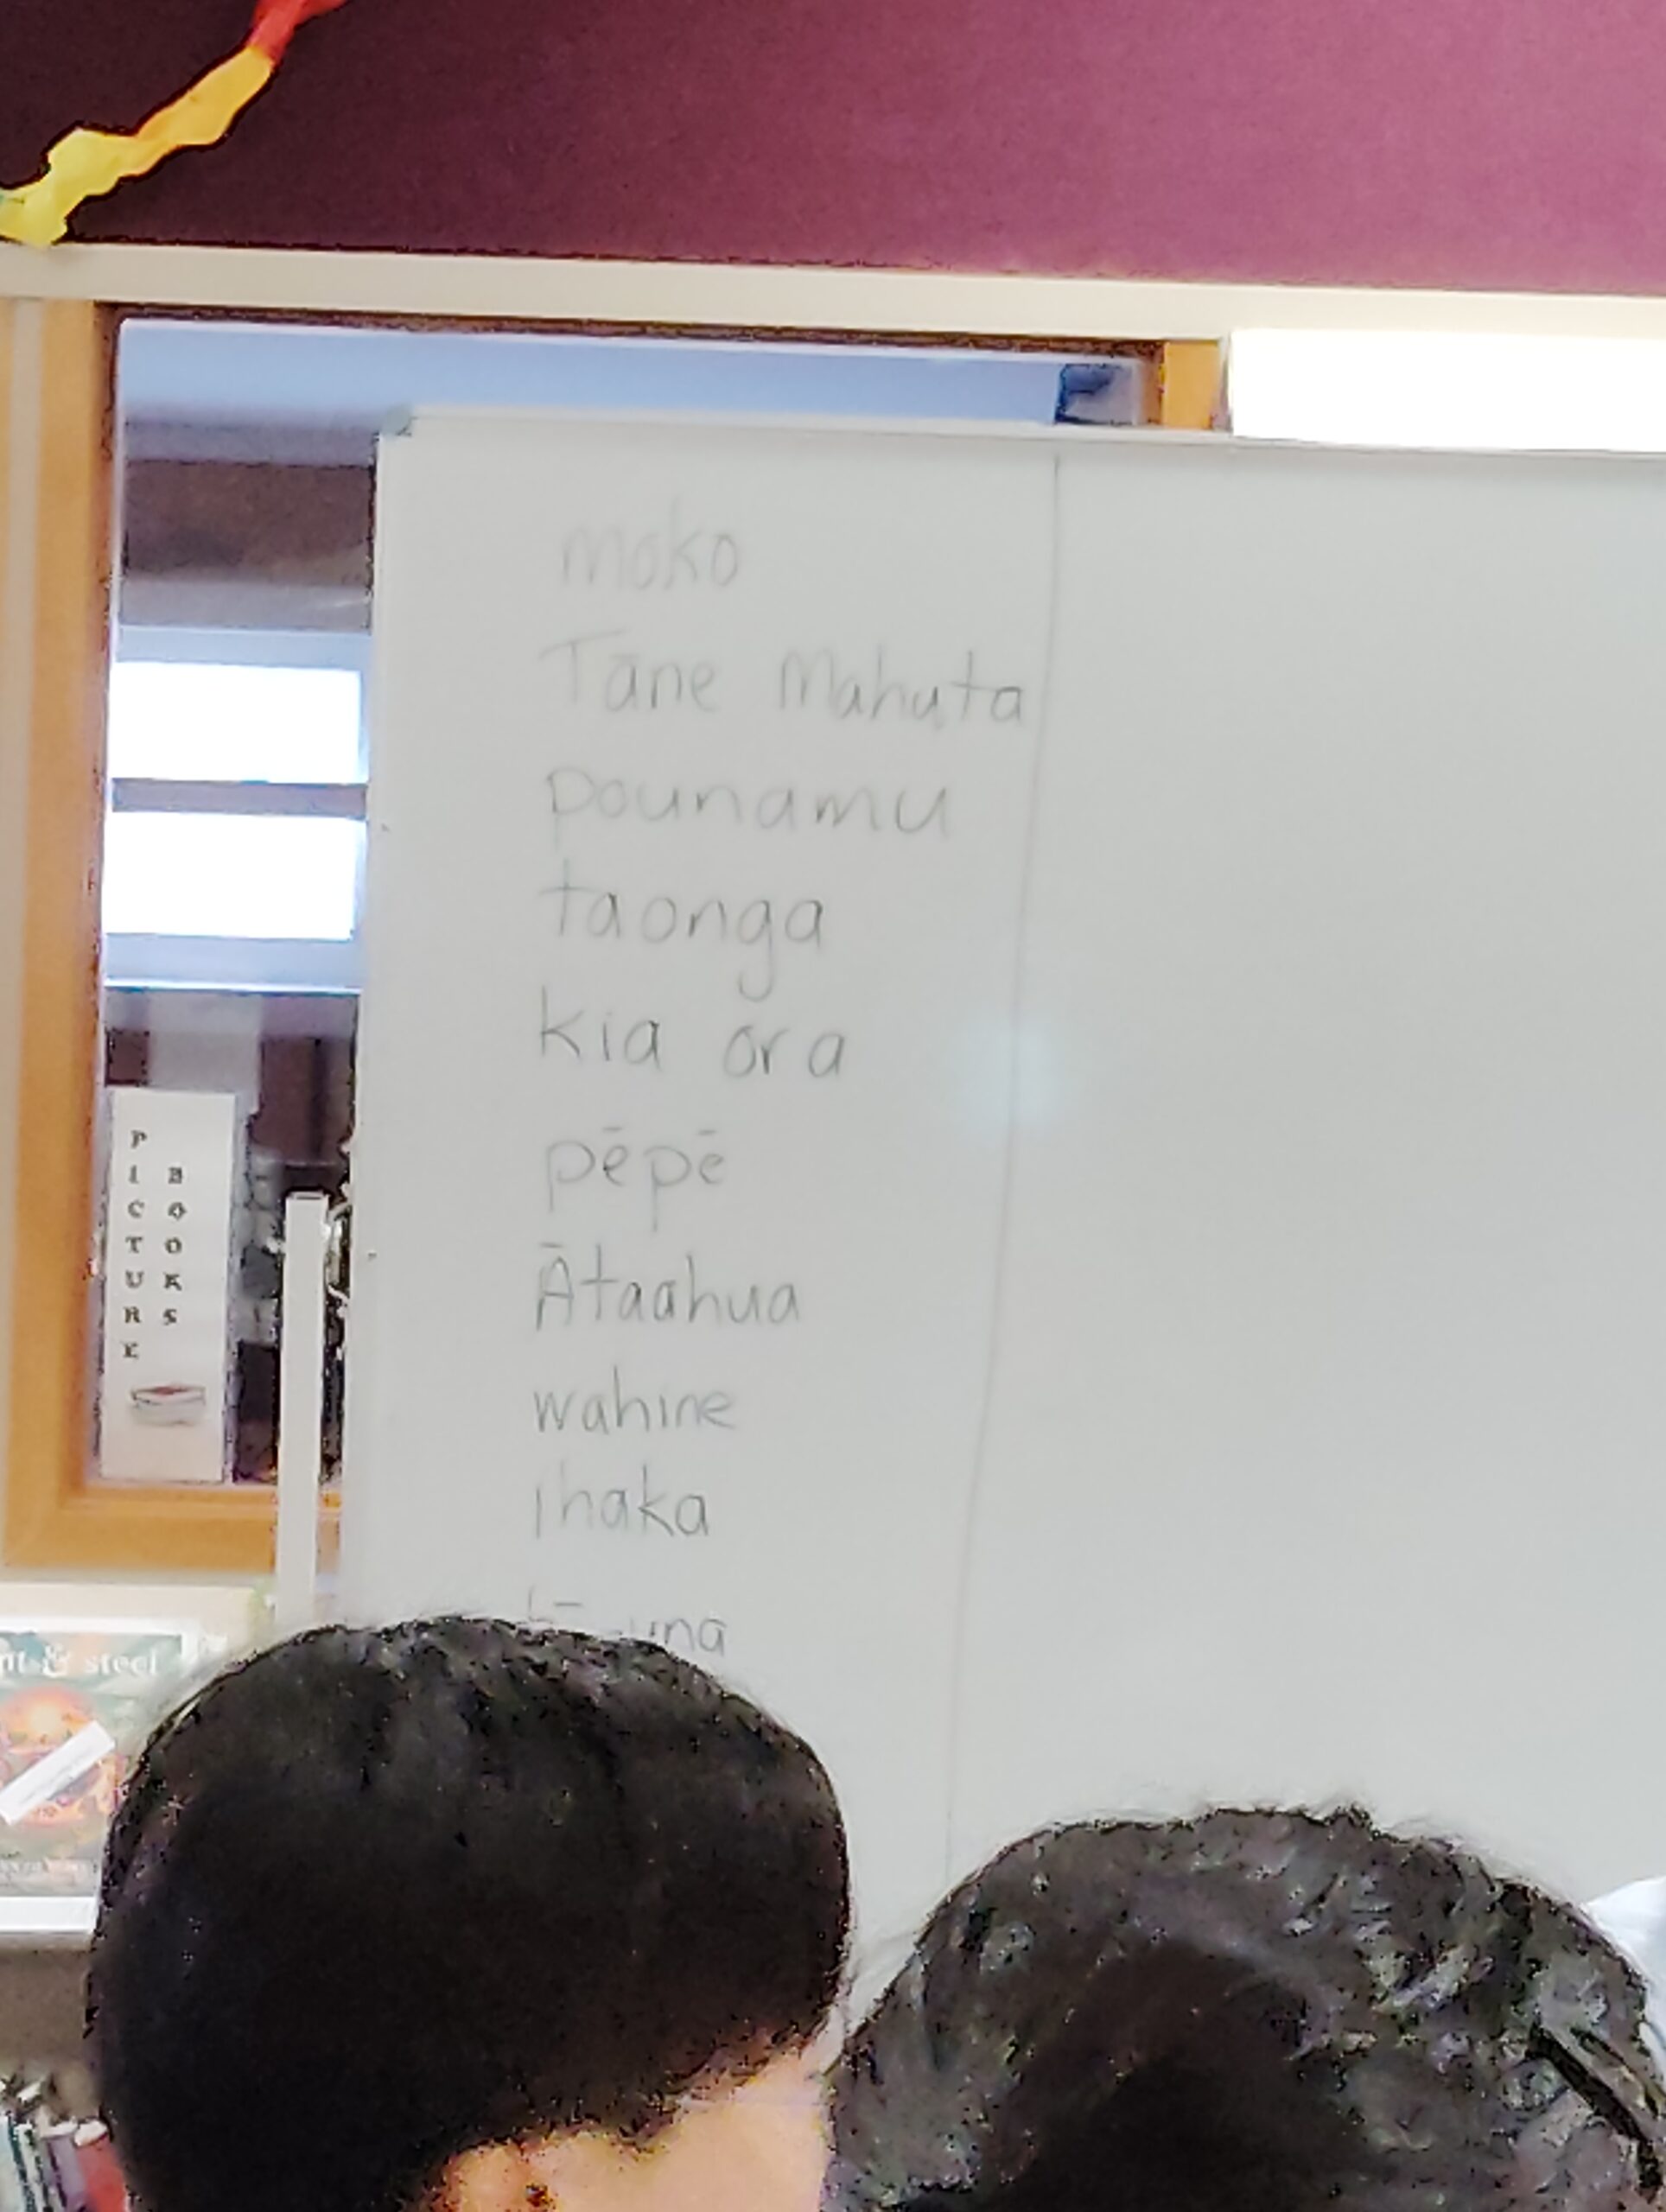 moko
Tāne Mahuta
pounamu
taonga
kia ora
pēpē
Ātaahua
wahine
ihaka
PICTURE
BOOKS
& steel